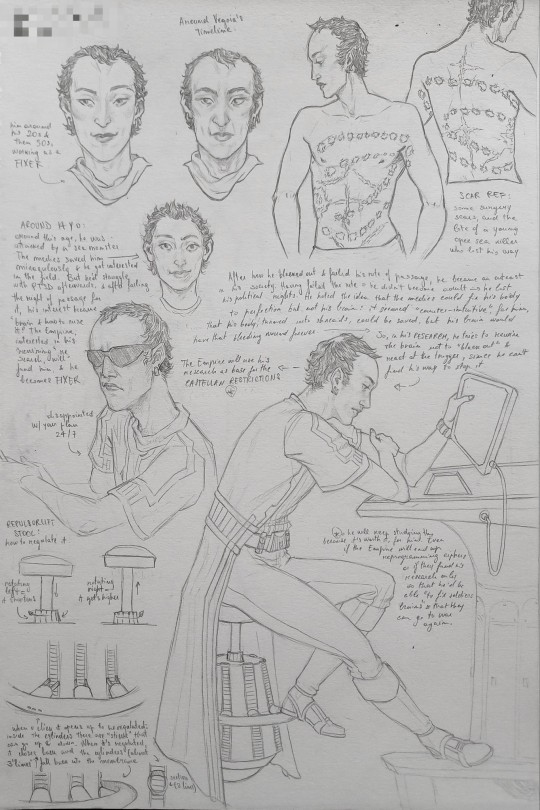 Around Vegoia's
Timeline:
him around
his 20s &
then 30s,
working as a
FIXER
SCAR REF:
some surgery
scars, and the
bite of a young
opee sea killer
who lost his way
AROUND 14 YO:
around this age, he was
attacked by a sea monster
The medics saved him
miraculously & he got interested
in the field. But beat
with PTSD afterwards, & after failing
the right of passage for
it, his interest became
"brain & how to
The Empire,
interested in his
find him & he
becomes FIXER
After how he blanked out & failed his rite of passage, he became an outcast
in his society. Having failed the rite = he didn't become adult = he lost
his political rights. He hated the idea that the medics could fix his body
to perfection but not his brain: it seemed "counter-intuitive" for him,
that his body, turned into shreds, could be saved, but his brain would
have that bleeding wound forever
So, in his RESEARCH, he tries to rewire
the brain not to "blank out" &
react at the trigger, since he can't
find his way to stop it
The Empire will use his
research as base for the
CASTELLAN RESTRICTIONS
disappointed
w/ your plan
24/7
REPULSORLIFT
STOOL:
how to regulate it
rotating
left =
it shortens
rotating
right =
it gets higher
he will keep studying this
because it's worth it, for him. Even
if the Empire will end up
reprogramming
or if they find his
research only
so that he'd be
able to fix soldiers
brains so that they
can go to war
again.
when it opens up to be regulated:
inside the cylinders there are "struts" that
can go up & down. When it's regulated,
it closes back and the cylinders
fall back into the membrane